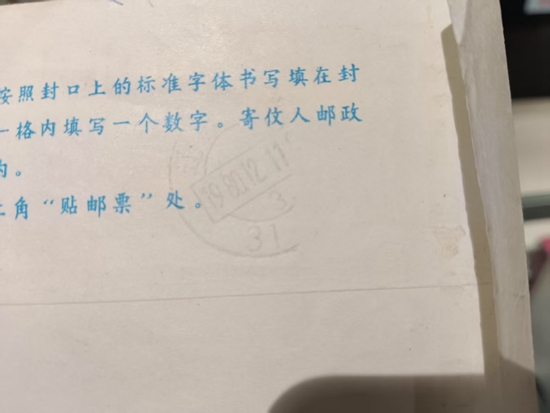 按照封口上的标准字体书写填在封
一格内填写一个数字。寄仅人邮政
内。
上角“贴邮票”处。
31